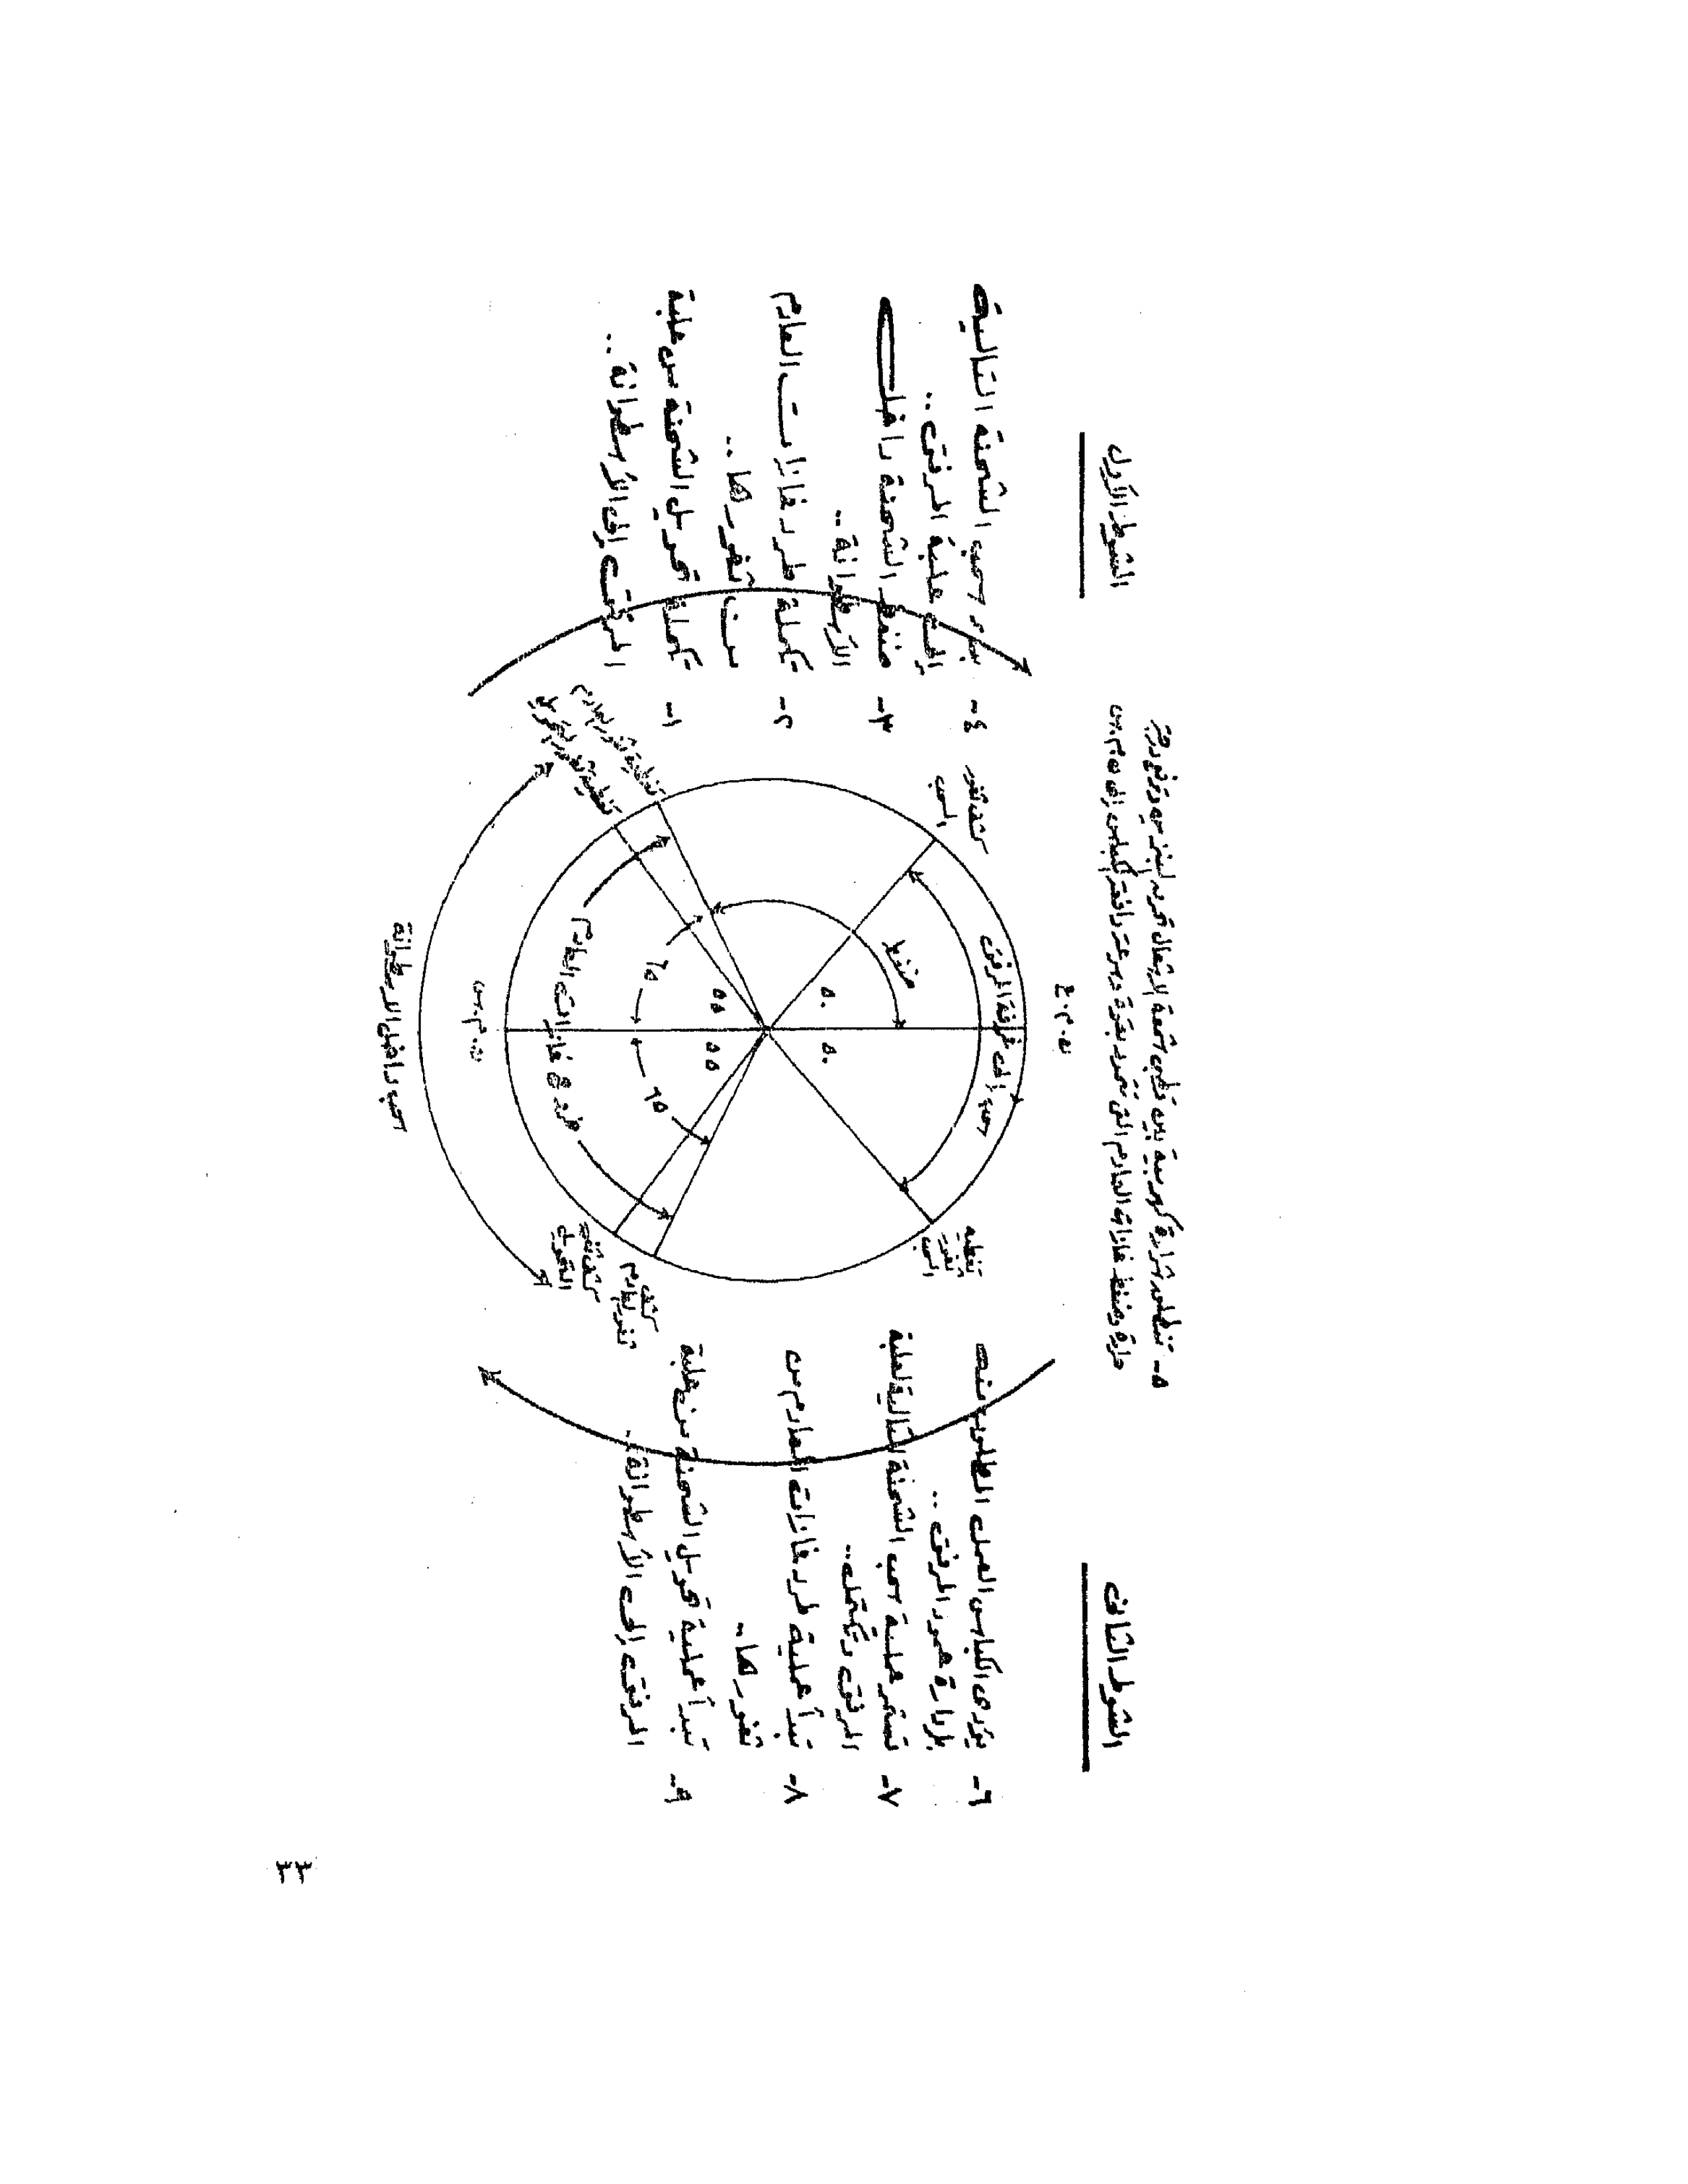 ٥- تنطلق شرارة كهربية بين قطبي شمعة الاشعال تحرق البنزين وترفع درجة
حرارة وضغط غازات العادم التي تتمدد بقوة وسرعة دافعة الكباس إلى ن.م.س
الشوط الأول
الشوط الثاني
ن.م.ع
٤- يبدء سحب الشحنة التالية
إلى علبة المرفق..
٣- ضغط الشحنة داخل
الأسطوانة..
٢- تكملة طرد غازات العادم
من ثغورها..
١- تكملة تحويل الشحنة من علبة
المرفق إلى الأسطوانة..
كشف ثغور
السحب
تغطية
ثغور
السحب
سحب إلى غرفة المرفق
ضغط
٥٠
٥٠
٥٥
٥٥
٦٥
٦٥
خروج غازات العادم
تغطية ثغور العادم
تغطية ثغور التحويل
كشف
ثغور العادم
كشف ثغور
التحويل
ن.م.س
سحب داخل الاسطوانة
٦- يؤدى الكباس العمل المطلوب منه
بإدارة عمود المرفق..
٧- تستمر عملية سحب الشحنة التالية لعلبة
المرفق وتكتمل..
٨- تبدأ عملية طرد غازات العادم من
ثغورها..
٩- تبدأ عملية تحويل الشحنة من علبة
المرفق إلى الأسطوانة..
٣٣